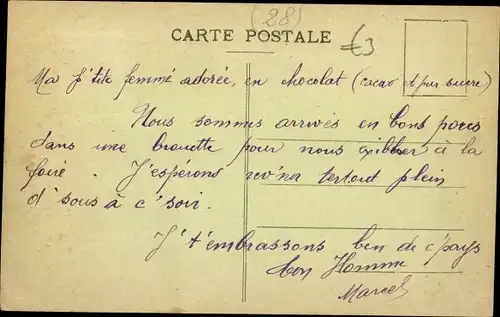 (28)
CARTE POSTALE
£3
Ma p'tite femme adorée, en chocolat (cacao et pur sucre)
Nous sommes arrivés en bons porcs
dans une brouette pour nous exibber à la
foire. J'espérons rev'nir tertout plein
d'sous à c'soir.
J't'embrassons ben de c'pays
ton Homme
Marcel